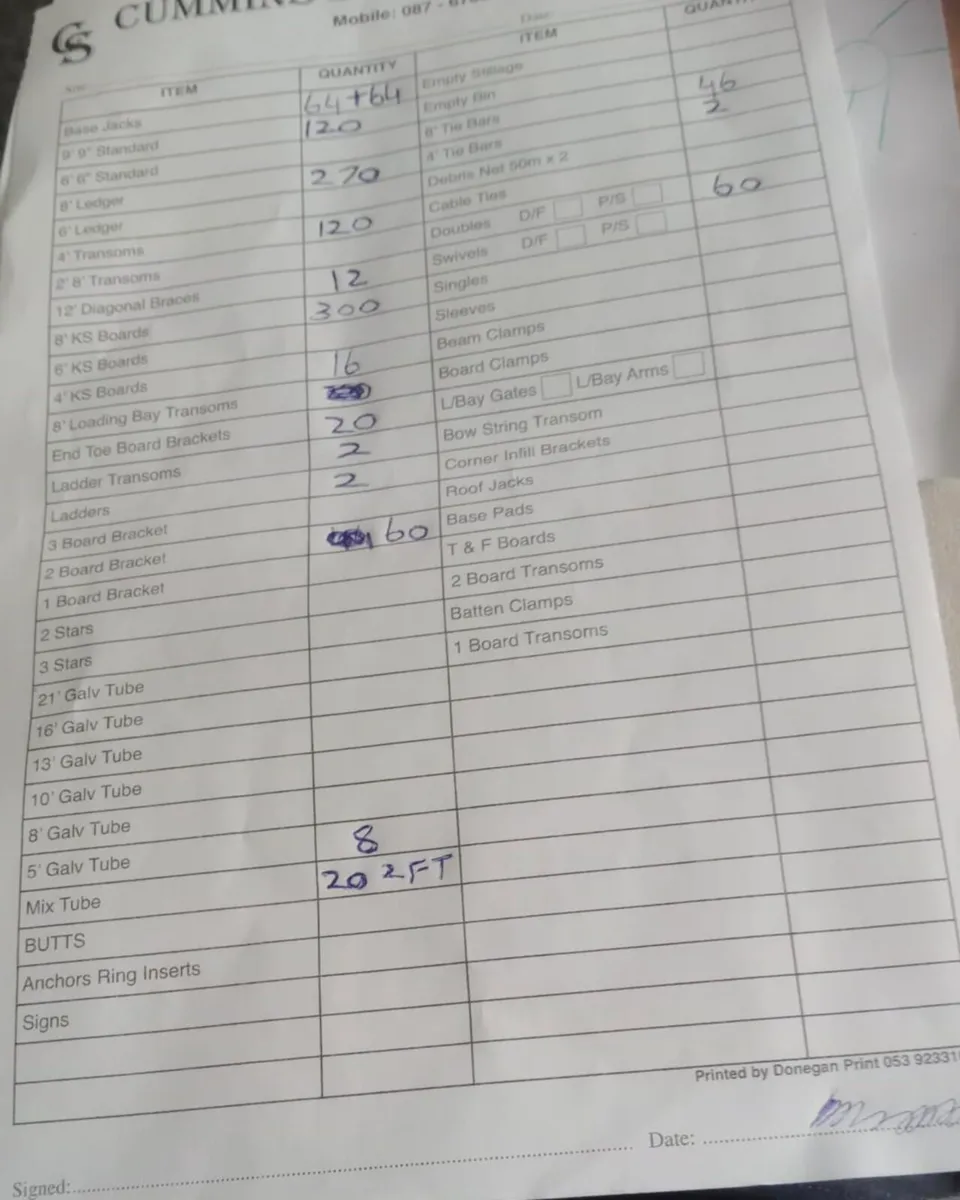 CS CUMMINS
Mobile: 087 -
ITEM QUANTITY ITEM
Base Jacks 64+64 Empty Stillage
9' 9" Standard 120 Empty Bin
6' 6" Standard 8' Tie Bars 46
8' Ledger 270 4' Tie Bars 2
6' Ledger Debris Net 50m x 2
4' Transoms 120 Cable Ties
2' 8' Transoms Doubles D/F P/S 60
12' Diagonal Braces 12 Swivels D/F P/S
8' KS Boards 300 Singles
6' KS Boards Sleeves
4' KS Boards 16 Beam Clamps
8' Loading Bay Transoms Board Clamps
End Toe Board Brackets 20 L/Bay Gates L/Bay Arms
Ladder Transoms 2 Bow String Transom
Ladders 2 Corner Infill Brackets
3 Board Bracket Roof Jacks
2 Board Bracket 60 Base Pads
1 Board Bracket T & F Boards
2 Stars 2 Board Transoms
3 Stars Batten Clamps
21' Galv Tube 1 Board Transoms
16' Galv Tube
13' Galv Tube
10' Galv Tube
8' Galv Tube
5' Galv Tube 8
Mix Tube 20 2FT
BUTTS
Anchors Ring Inserts
Signs
Printed by Donegan Print 053 92331
Signed: Date: